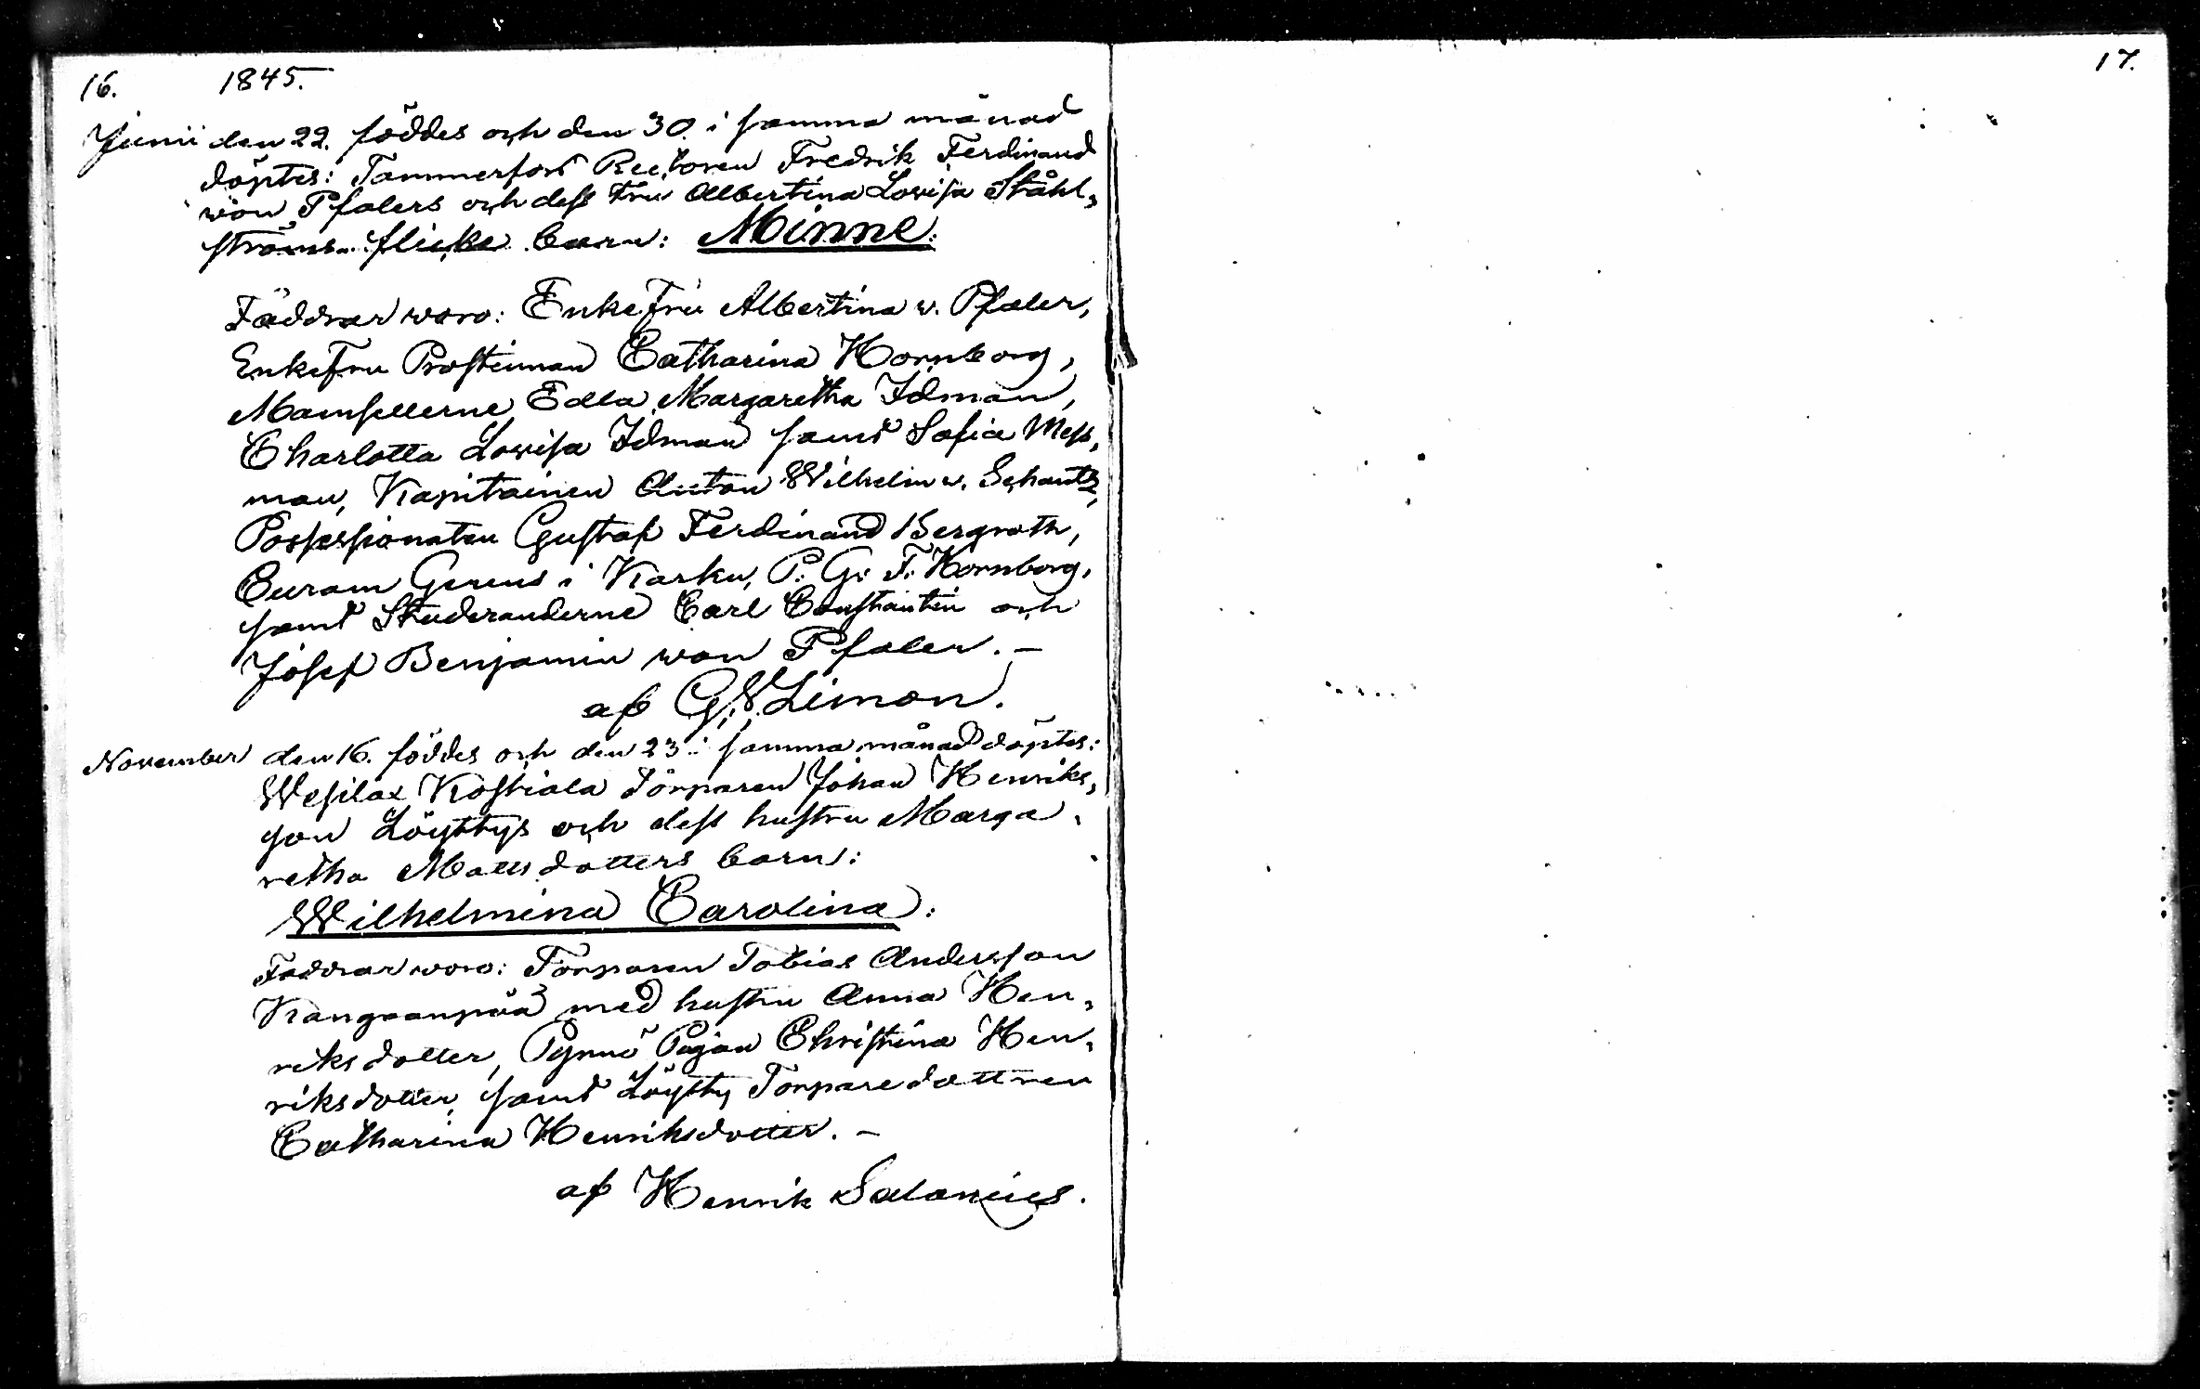 16. 1845.
17.
Junii den 22. föddes och den 30. i samma månad
döptes: Tammerfors Rectoren Fredrik Ferdinand
won Pfalers och dess Fru Albertina Lovisa Ståhl-
ströms flicke barn: Minne.
Faddrar woro: EnkeFru Albertina v. Pfaler,
EnkeFru Prostinnan Catharina Hornborg,
Mamsellerne Edla Margaretha Idman,
Charlotta Lovisa Idman samt Sofia Mess-
man, Kapitainen Anton Wilhelm v. Schantz,
Possessionaten Gustaf Ferdinand Bergroth,
Curam Gerens i Karku, P. G: F: Hornborg,
samt Studeranderne Carl Constantin och
Josef Benjamin won Pfaler. –
af G. Limon.
November den 16. föddes och den 23. i samma månad döptes:
Wesilax Kostiala Torparen Johan Henriks-
son Löyttys och dess hustru Marga-
retha Mattsdotters barn:
Wilhelmina Carolina:
Faddrar woro: Torparen Tobias Andersson
Kangaanpää med hustru Anna Hen-
riksdotter, Pigan Christina Hen-
riksdotter, samt Löytty Torparedottren
Catharina Henriksdotter. –
af Henrik Salonius.